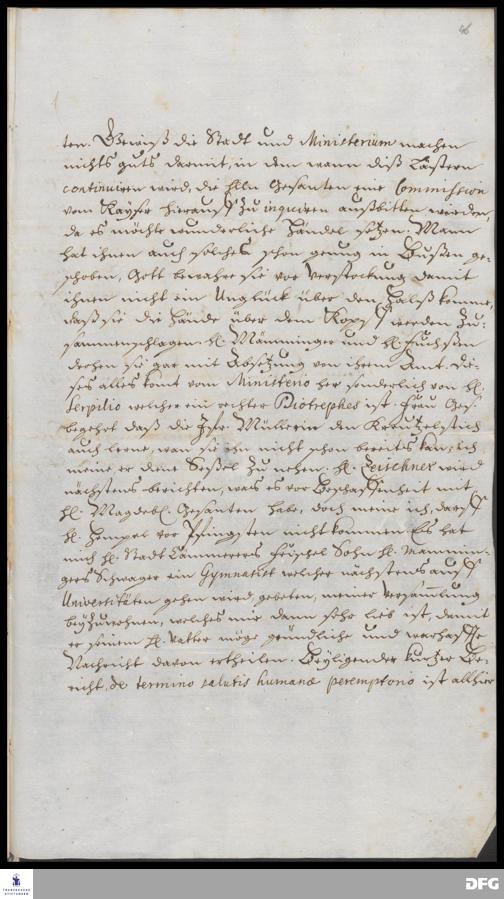 46
ten. Gewiß die Stadt und Ministerium machen
nichts guts damit, in dem wann diß Lästern
continuiren wird, die Hln Gesanten eine Commission
vom Kayser hierauff zu inquiren außbitten werden,
da es möchte wunderliche Händel setzen. Mann
hat ihnen auch solches schon genug in Bußen ge-
schoben, Gott bewahre sie vor Verstockung damit
ihnen nicht ein Unglück über den Halß komme,
daß sie die Hände über dem Kopff werden zu-
sammenschlagen. H. Mämminger und H. Fuchsen
drohen sie gar mit Absetzung von ihrem Amt. Die-
ses alles komt vom Ministerio her sonderlich von H.
Serpilio welcher ein rechter Diotrephes ist. Frau
begehrt daß die Jfr. Müllerin den Kreutzelstich
auch lerne, wan sie ihn nicht schon bereits kan, ich
meine er diene Seßel zu nehen. H. Zeischner wird
nächstens berichten, was es vor Beschaffenheit mit
H. Magdebl. Gesanten habe, doch meine ich, darff
H. Hempel vor Pfingsten nicht kommen. Es hat
mich H. Stadt Cämmerers Sohn H. Mämmin-
gers Schwager ein Gymnasist welcher nächstens auff
Universitäten gehen wird, gebeten, meiner Versamlung
beyzuwohnen, welches mir dann sehr lieb ist, damit
er seinem H. Vatter möge gründliche und warhaffte
Nachricht davon ertheilen. Beyligender kurtzer Be-
richt, de termino salutis humanæ peremptorio ist allhier
FRANCKESCHE STIFTUNGEN
DFG